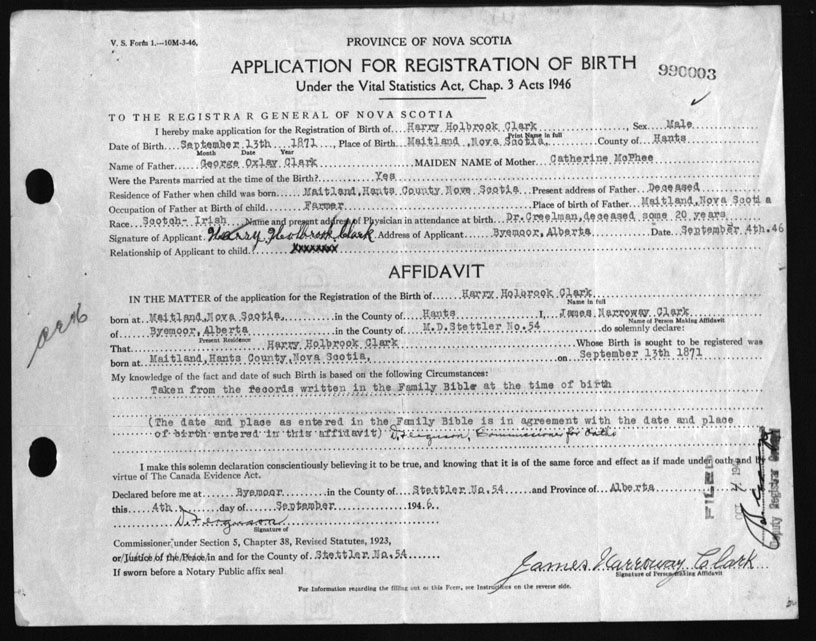 V. S. Form 1.—10M-3-46.
PROVINCE OF NOVA SCOTIA
APPLICATION FOR REGISTRATION OF BIRTH
990003
Under the Vital Statistics Act, Chap. 3 Acts 1946
TO THE REGISTRAR GENERAL OF NOVA SCOTIA
I hereby make application for the Registration of Birth of Harry Holbrook Clark, Sex Male
Print Name in full
Date of Birth September 13th 1871, Place of Birth Maitland, Nova Scotia, County of Hants
Month Date Year
Name of Father George Oxley Clark MAIDEN NAME of Mother Catherine McPhee
Were the Parents married at the time of the Birth? Yes
Residence of Father when child was born Maitland, Hants County Nova Scotia Present address of Father Deceased
Occupation of Father at Birth of child Farmer Place of birth of Father Maitland, Nova Scotia
Race Scotch- Irish Name and present address of Physician in attendance at birth Dr. Creelman, deceased some 20 years
Signature of Applicant Harry Holbrook Clark Address of Applicant Byemoor, Alberta Date September 4th. 46
Relationship of Applicant to child xxxxxxx
AFFIDAVIT
IN THE MATTER of the application for the Registration of the Birth of Harry Holbrook Clark
Name in full
born at Maitland, Nova Scotia, in the County of Hants I, James Narroway Clark
Name of Person Making Affidavit
of Byemoor, Alberta in the County of M.D. Stettler No. 54 do solemnly declare:
Present Residence
That Harry Holbrook Clark Whose Birth is sought to be registered was
born at Maitland, Hants County, Nova Scotia, on September 13th 1871
My knowledge of the fact and date of such Birth is based on the following Circumstances:
Taken from the records written in the Family Bible at the time of birth
(The date and place as entered in the Family Bible is in agreement with the date and place
of birth entered in this affidavit) D. Ferguson, Commissioner for Oaths
I make this solemn declaration conscientiously believing it to be true, and knowing that it is of the same force and effect as if made under oath and by
virtue of The Canada Evidence Act.
Declared before me at Byemoor in the County of Stettler No. 54 and Province of Alberta
this 4th. day of September 1946.
D. Ferguson
Signature of
Commissioner under Section 5, Chapter 38, Revised Statutes, 1923,
or Justice of the Peace in and for the County of Stettler No. 54
If sworn before a Notary Public affix seal
James Narroway Clark
Signature of Person Making Affidavit
For Information regarding the filling out of this Form, see Instructions on the reverse side.
FILED
Deputy Registrar General